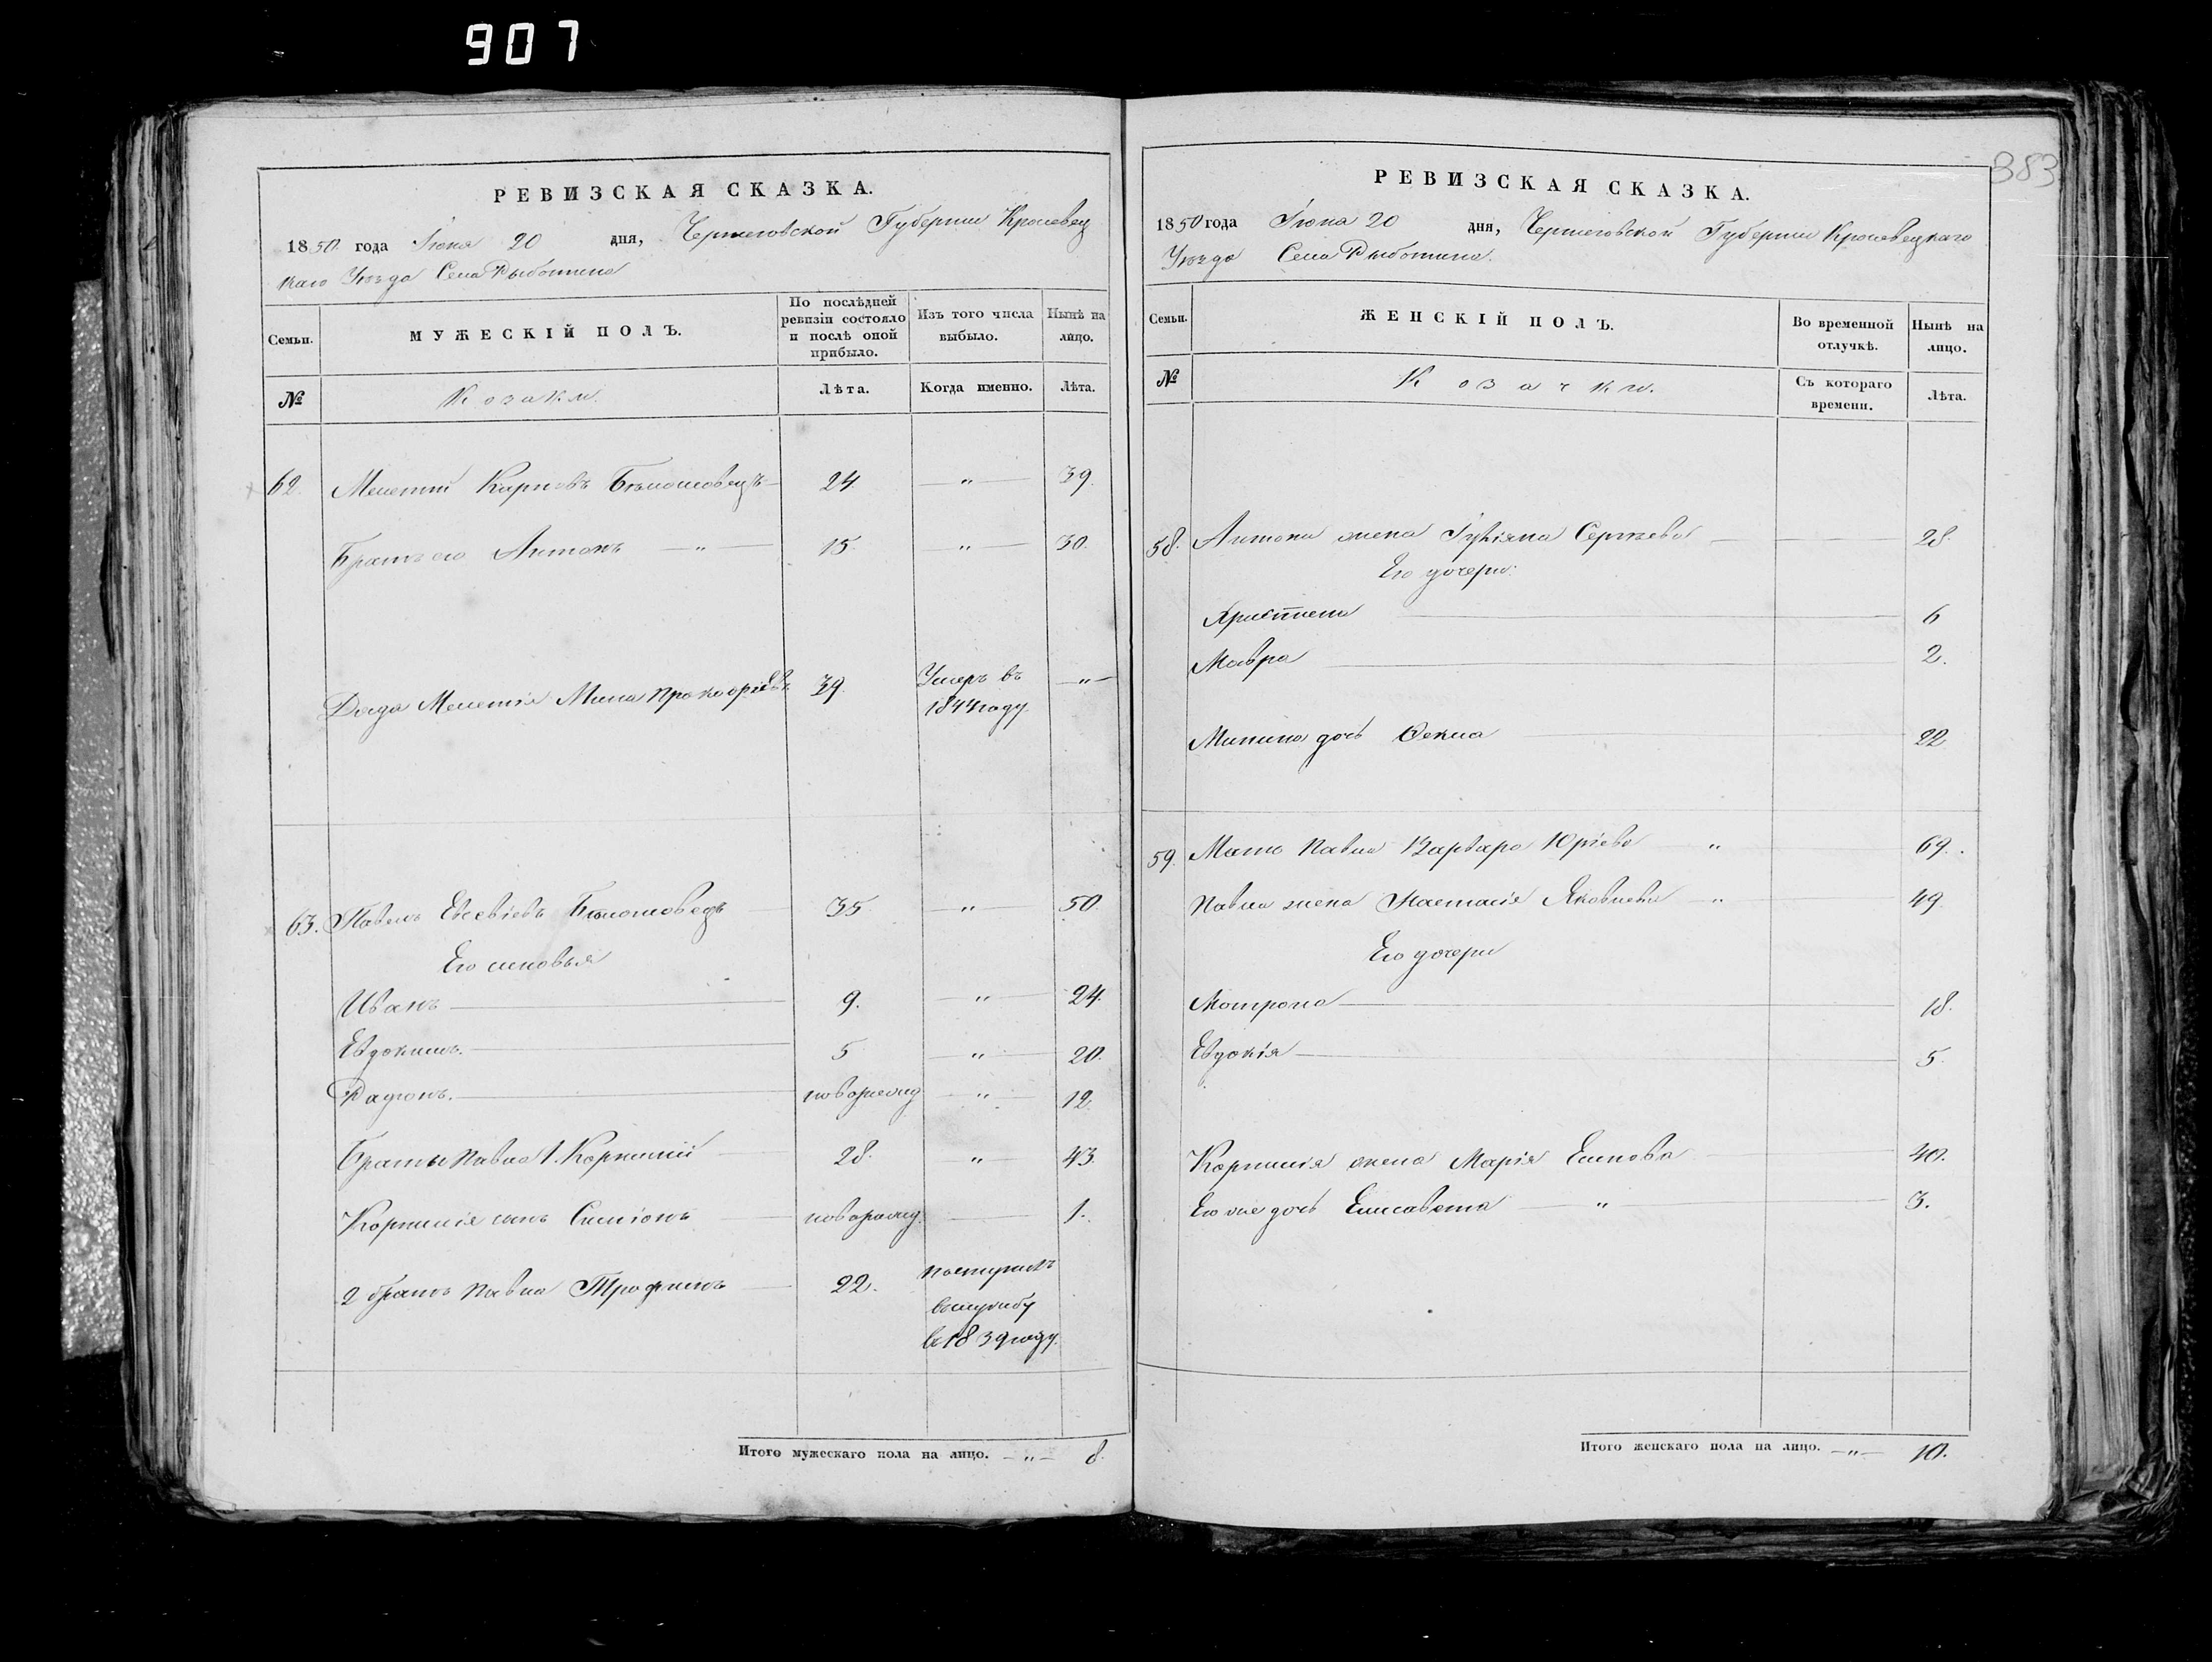 907
383
РЕВИЗСКАЯ СКАЗКА.
1850 года Іюня 20 дня, Черниговской Губерніи Кролевец
каго Уѣзда Села Рыботина
Семьи. МУЖЕСКІЙ ПОЛЪ. По послѣдней ревизіи состояло и послѣ оной прибыло. Изъ того числа выбыло. Нынѣ на лицо.
№ Козаки. Лѣта. Когда именно. Лѣта.
62. Мелетій Карповъ Бѣлошовецъ 24 — " — 39.
Братъ его Антонъ — " — 15. — " — 30.
Дядя Мелетія Мина Прокофіевъ 39. Умеръ въ 1844 году. — " —
63. Павелъ Евсевіевъ Бѣлошовецъ 35 — " — 50
Его сыновья
Иванъ 9. — " — 24.
Евдокимъ. 5 — " — 20.
новорожд — " — 12.
Браты Павла 1. Корнилій 28. — " — 43.
Корнилія сынъ Симіонъ новорожд. 1.
2 братъ Павла Трофимъ 22. поступилъ
вслужбу
в 1839 году.
Итого мужескаго пола на лицо. — " — 8.
РЕВИЗСКАЯ СКАЗКА.
1850 года Іюня 20 дня, Черниговской Губерніи Кролевецкаго
Уѣзда Села Рыботина.
Семьи. ЖЕНСКІЙ ПОЛЪ. Во временной отлучкѣ. Нынѣ на лицо.
№ Козачки. Съ котораго времени. Лѣта.
58. Антона жена Сергѣева 28.
Его дочери:
Христина 6
Мавра 2.
Минина дочь Фекла 22
59. Мать Павла Варвара Юріева " 69.
Павла жена Настасія Яковлева — " 49
Его дочери
Мотрона 18.
Евдокія 5.
Корнилія жена Марія 40.
Его же дочь Елисавета — " 3.
Итого женскаго пола на лицо. — " — 10.